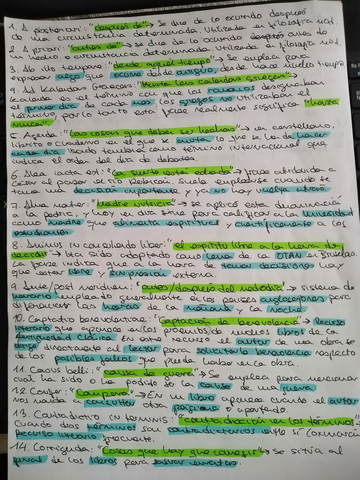 1. A posteriori: "después de" → Se dice de lo ocurrido después
de una circunstancia determinada. Utilizada en filosofía
2. A priori: "antes de" → Se dice de lo ocurrido antes de
un hecho o circunstancia determinada. Utilizada en filosofía
3. Ab illo tempore: "desde aquel tiempo" → Se emplea para
expresar algo que ocurre desde antiguo, desde hace mucho tiempo
4. Ad Kalendas Graecas: "Hasta las calendas griegas" →
Kalendae es el término con que los romanos designaban
el primer día de cada mes, los griegos no utilizaban el
término, por lo tanto esta frase realmente significa "hasta
nunca"
5. Agenda: "Las cosas que deben ser hechas" → en castellano,
libreta o cuaderno en el que se anota lo que se ha de hacer
cada día. También como término internacional que
indica el orden del día de debates
6. Alea iacta est: "La suerte está echada" → frase atribuida a
César al pasar el Rubicón; suele emplearse cuando se
toma una decisión importante y ya no hay vuelta atrás
7. Alma mater: "Madre nutricia" → se aplicó esta denominación
a la patria, y hoy en día sirve para calificar a la Universidad
como madre que alimenta espiritual y científicamente a los
estudiantes
8. Animus in consulendo liber: "el espíritu libre a la hora de
decidir" → Ha sido adoptado como lema de la OTAN en Bruselas.
La frase indica que a la hora de tomar decisiones hay
que estar libre y sin presión externa
9. Ante/post meridiem: "antes/después del mediodía" → sistema de
horario empleado generalmente en los países anglosajones para
diferenciar las horas de la mañana y la noche
10. Captatio benevolentiae: "Captación de benevolencia" → Recurso
literario que aparece en los prólogos de muchos libros de la
antigüedad clásica. En este recurso el autor de una obra se
dirige directamente al lector para solicitarle benevolencia respecto
de los posibles fallos que pueda haber en la obra.
11. Casus belli: "causa de guerra" → Se emplea para mencionar
cual ha sido o ha podido ser la causa de una guerra
12. Confer: "Compara" → En un libro aparece cuando el autor
nos manda a consultar otra página o apartado.
13. Contradictio in terminis: "contradicción en los términos"
Cuando dos términos son contradictorios entre sí
recurso literario frecuente.
14. Corrigenda: "Cosas que hay que corregir" → Se sitúa al
final de los libros para salvar erratas.